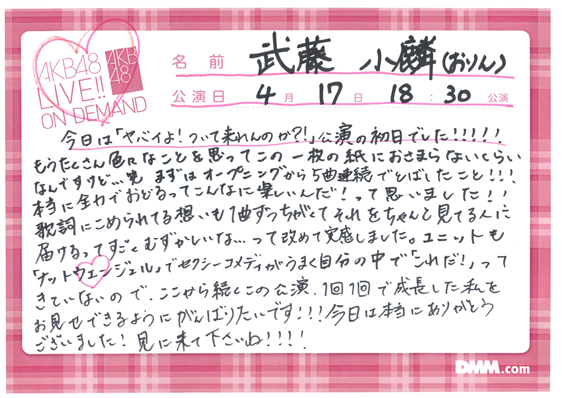 AKB48
LIVE!!
ON DEMAND
AKB
48
名前 武藤 小麟(おりん)
公演日 4月 17日 18:30公演
今日は「ヤバイよ!ついて来れんのか?!」公演の初日でした!!!!!
もうたくさん色々なことを思ってこの一枚の紙におさまらないくらい
なんですけど...笑 まずはオープニングから5曲連続でとばしたこと!!!
本当に全力でおどるってこんなに楽しいんだ!って思いました!!
歌詞にこめられてる想いも1曲ずつちがくてそれをちゃんと見てる人に
届けるってすごくむずかしいな...って改めて実感しました。ユニットも
「ナットウエンジェル」でセクシーコメディがうまく自分の中で「これだ!」って
きていないので、ここから続くこの公演、1回1回で成長した私を
お見せできるようにがんばりたいです!!!今日は本当にありがとう
ございました!見に来て下さいね!!!!
DMM.com